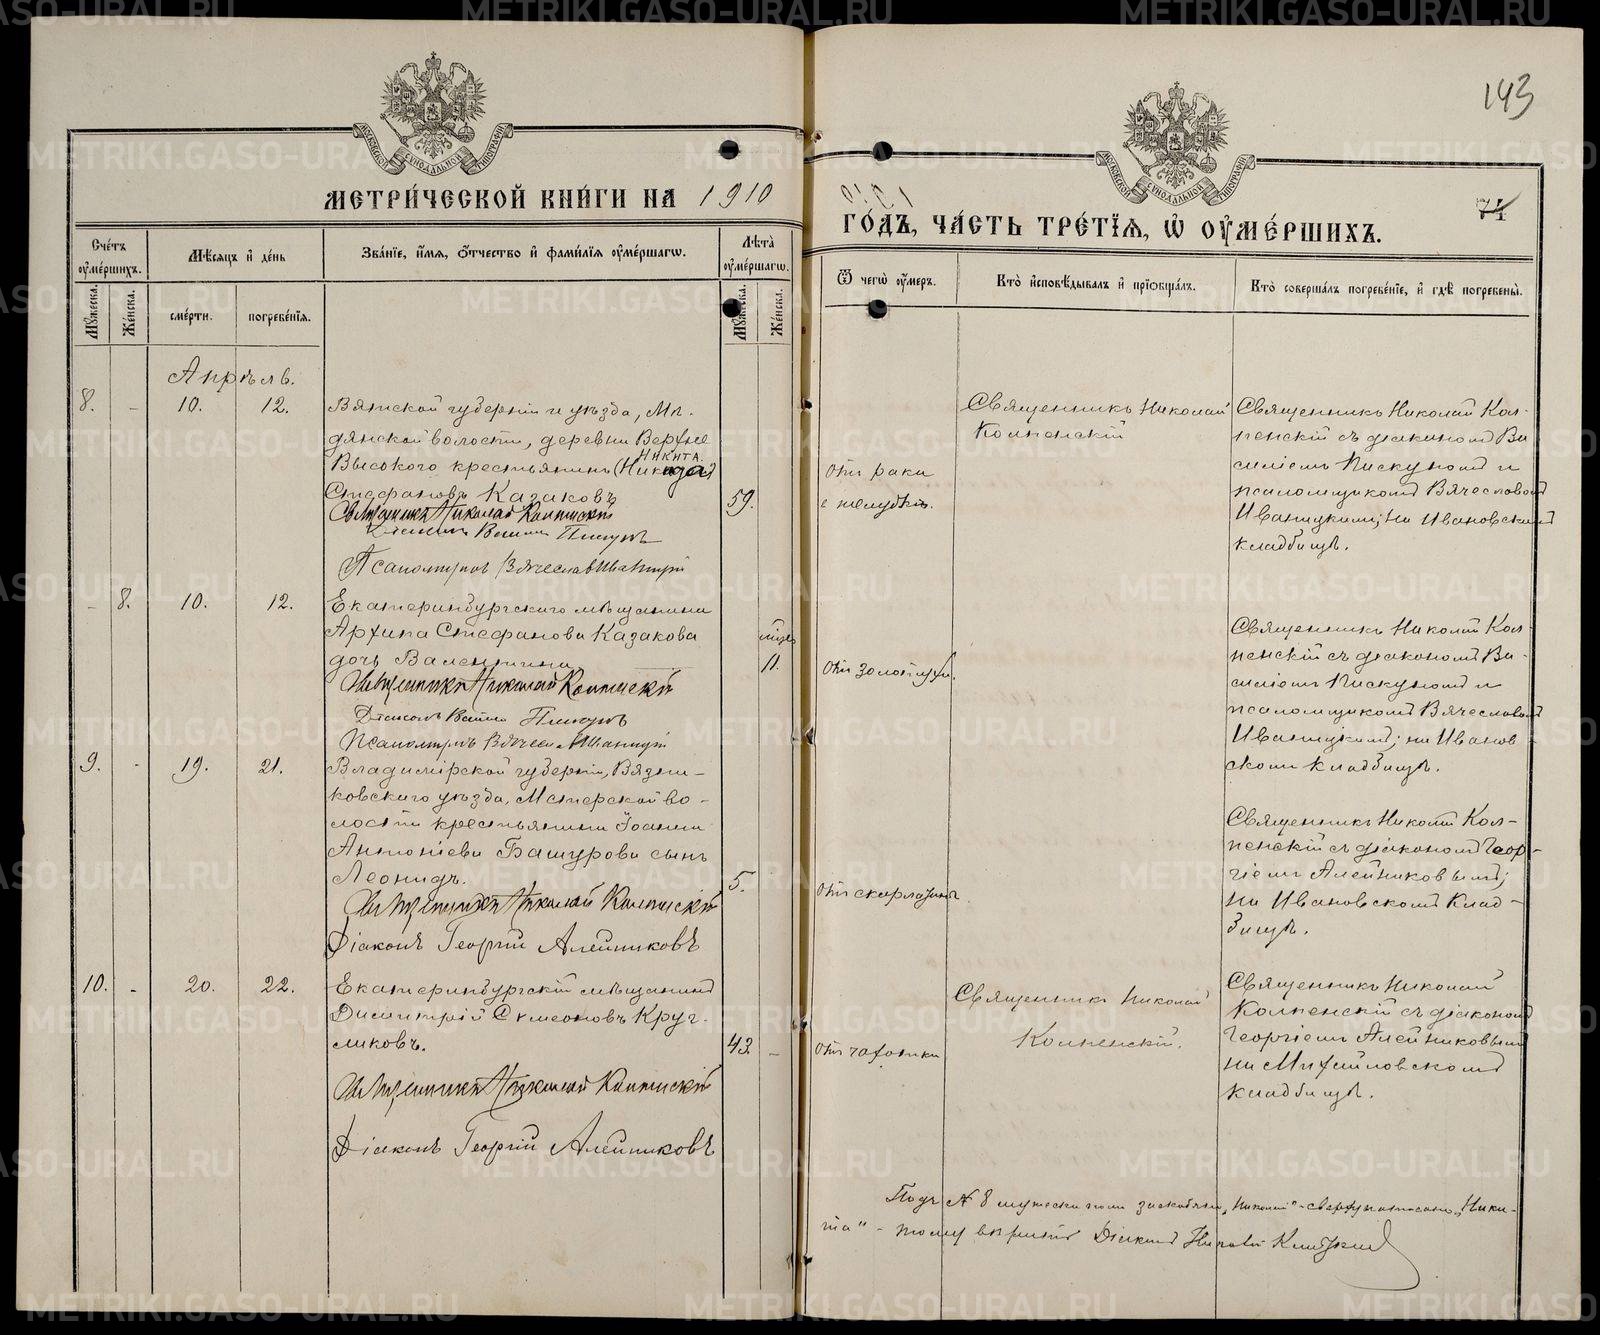 143
МОСКОВСКОЙ СУНОДАЛЬНОЙ ТИПОГРАФИИ
МЕТРИ́ЧЕСКОЙ КНИ́ГИ НА 1910
МОСКОВСКОЙ СУНОДАЛЬНОЙ ТИПОГРАФИИ
74
ГО́ДЪ, ЧА́СТЬ ТРЕ́ТЇѦ, Ѡ ОУМЕ́РШИХЪ.
Сче́тъ оуме́ршихъ.
Мѣсѧцъ и де́нь
Зва́нїе, и́мѧ, ѻ́тчество и фами́лїѧ оуме́ршагѡ.
Лѣта̀ оуме́ршагѡ.
Мꙋжеска.
Же́нска.
сме́рти.
погребе́нїѧ.
Мꙋжеска.
Же́нска.
Ѿ чегѡ̀ оу́меръ.
Кто̀ исповѣ́дывалъ и прїѡбща́лъ.
Кто̀ соверша́лъ погребе́нїе, и гдѣ̀ погребены̀.
Апрѣль.
8. - 10. 12.
Вятской губерніи и уѣзда, Мѣ-
дянской волости, деревни Верхне
Никита.
Высокого крестьянинъ (Николай)
Стефановъ Казаковъ
59.
Священникъ Николай Колпенскій
Діаконъ Василій Пискуновъ
Псаломщикъ Вячеславъ Иваницкій
отъ рака
желудка.
Священникъ Николай
Колпенскій
Священникъ Николай Кол-
пенскій съ діакономъ Ва-
силіемъ Пискуномъ и
псаломщикомъ Вячеславомъ
Иваницкимъ; на Ивановскомъ
кладбищѣ.
- 8. 10. 12.
Екатеринбургскаго мѣщанина
Архипа Стефанова Казакова
дочь Валентина
11.
Священникъ Николай Колпенскій
Діаконъ Василій Пискуновъ
Псаломщикъ Вячеславъ Иваницкій
отъ золотухи.
Священникъ Николай Кол-
пенскій съ діакономъ Ва-
силіемъ Пискуномъ и
псаломщикомъ Вячеславомъ
Иваницкимъ; на Иванов
скомъ кладбищѣ.
9. - 19. 21.
Владимірской губерніи, Вязни-
ковскаго уѣзда, Мстерской во-
лости крестьянина Іоанна
Антоніева Башурова сынъ
Леонидъ.
5.
Священникъ Николай Колпенскій
Діаконъ Георгій Алейниковъ
отъ скарлатины
Священникъ Николай Кол-
пенскій съ діакономъ Геор-
гіемъ Алейниковымъ;
на Ивановскомъ клад-
бищѣ.
10. - 20. 22.
Екатеринбургскій мѣщанинъ
Димитрій Симеоновъ Круг-
ликовъ.
43. -
Священникъ Николай Колпенскій
Діаконъ Георгій Алейниковъ
отъ чахотки
Священникъ Николай
Колпенскій.
Священникъ Николай
Колпенскій съ діакономъ
Георгіемъ Алейниковымъ
на Михайловскомъ
кладбищѣ.
Подъ № 8 мужеска пола заскоблено „Николай" - сверху написано „Ники-
та" - тому вѣрить Діаконъ
METRIKI.GASO-URAL.RU